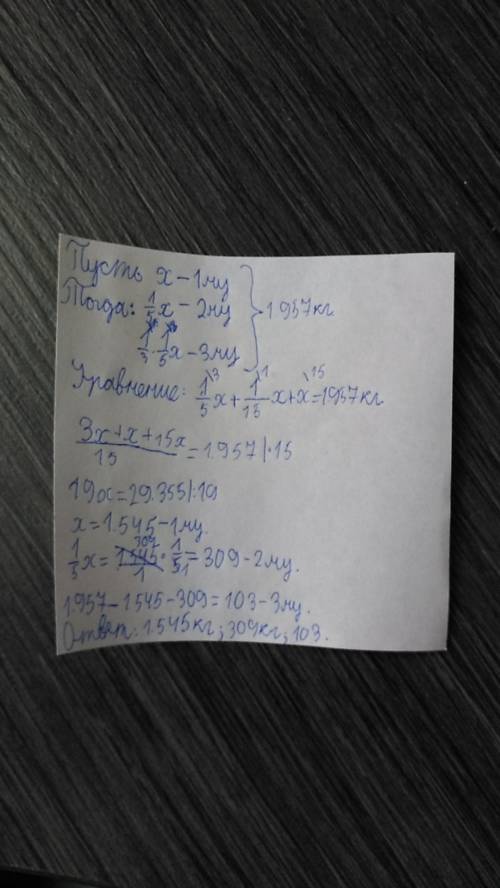 Пусть x - 1му
Тогда: 1/5 x - 2му } 1.957кг
1/3 · 1/5 x - 3му
Уравнение: 1/5 \3 x + 1/15 \1 x + x \15 = 1957кг
3x + x + 15x / 15 = 1.957 | · 15
19x = 29.355 | : 19
x = 1.545 - 1му.
1/5 x = 1545 309 / 1 · 1/5 1 = 309 - 2му.
1.957 - 1545 - 309 = 103 - 3му.
Ответ: 1.545кг; 309кг; 103.